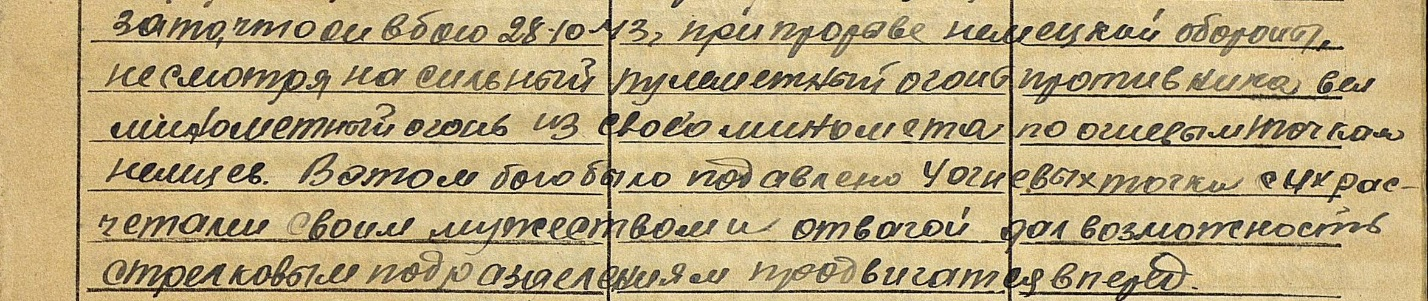 за то, что он в бою 28.10.43, при прорыве немецкой обороны,
несмотря на сильный пулеметный огонь противника вел
минометный огонь из своего миномета по огневым точкам
немцев. В этом бою было подавлено 4 огневых точки с их рас-
четами своим мужеством и отвагой дал возможность
стрелковым подразделениям продвигатся вперед.